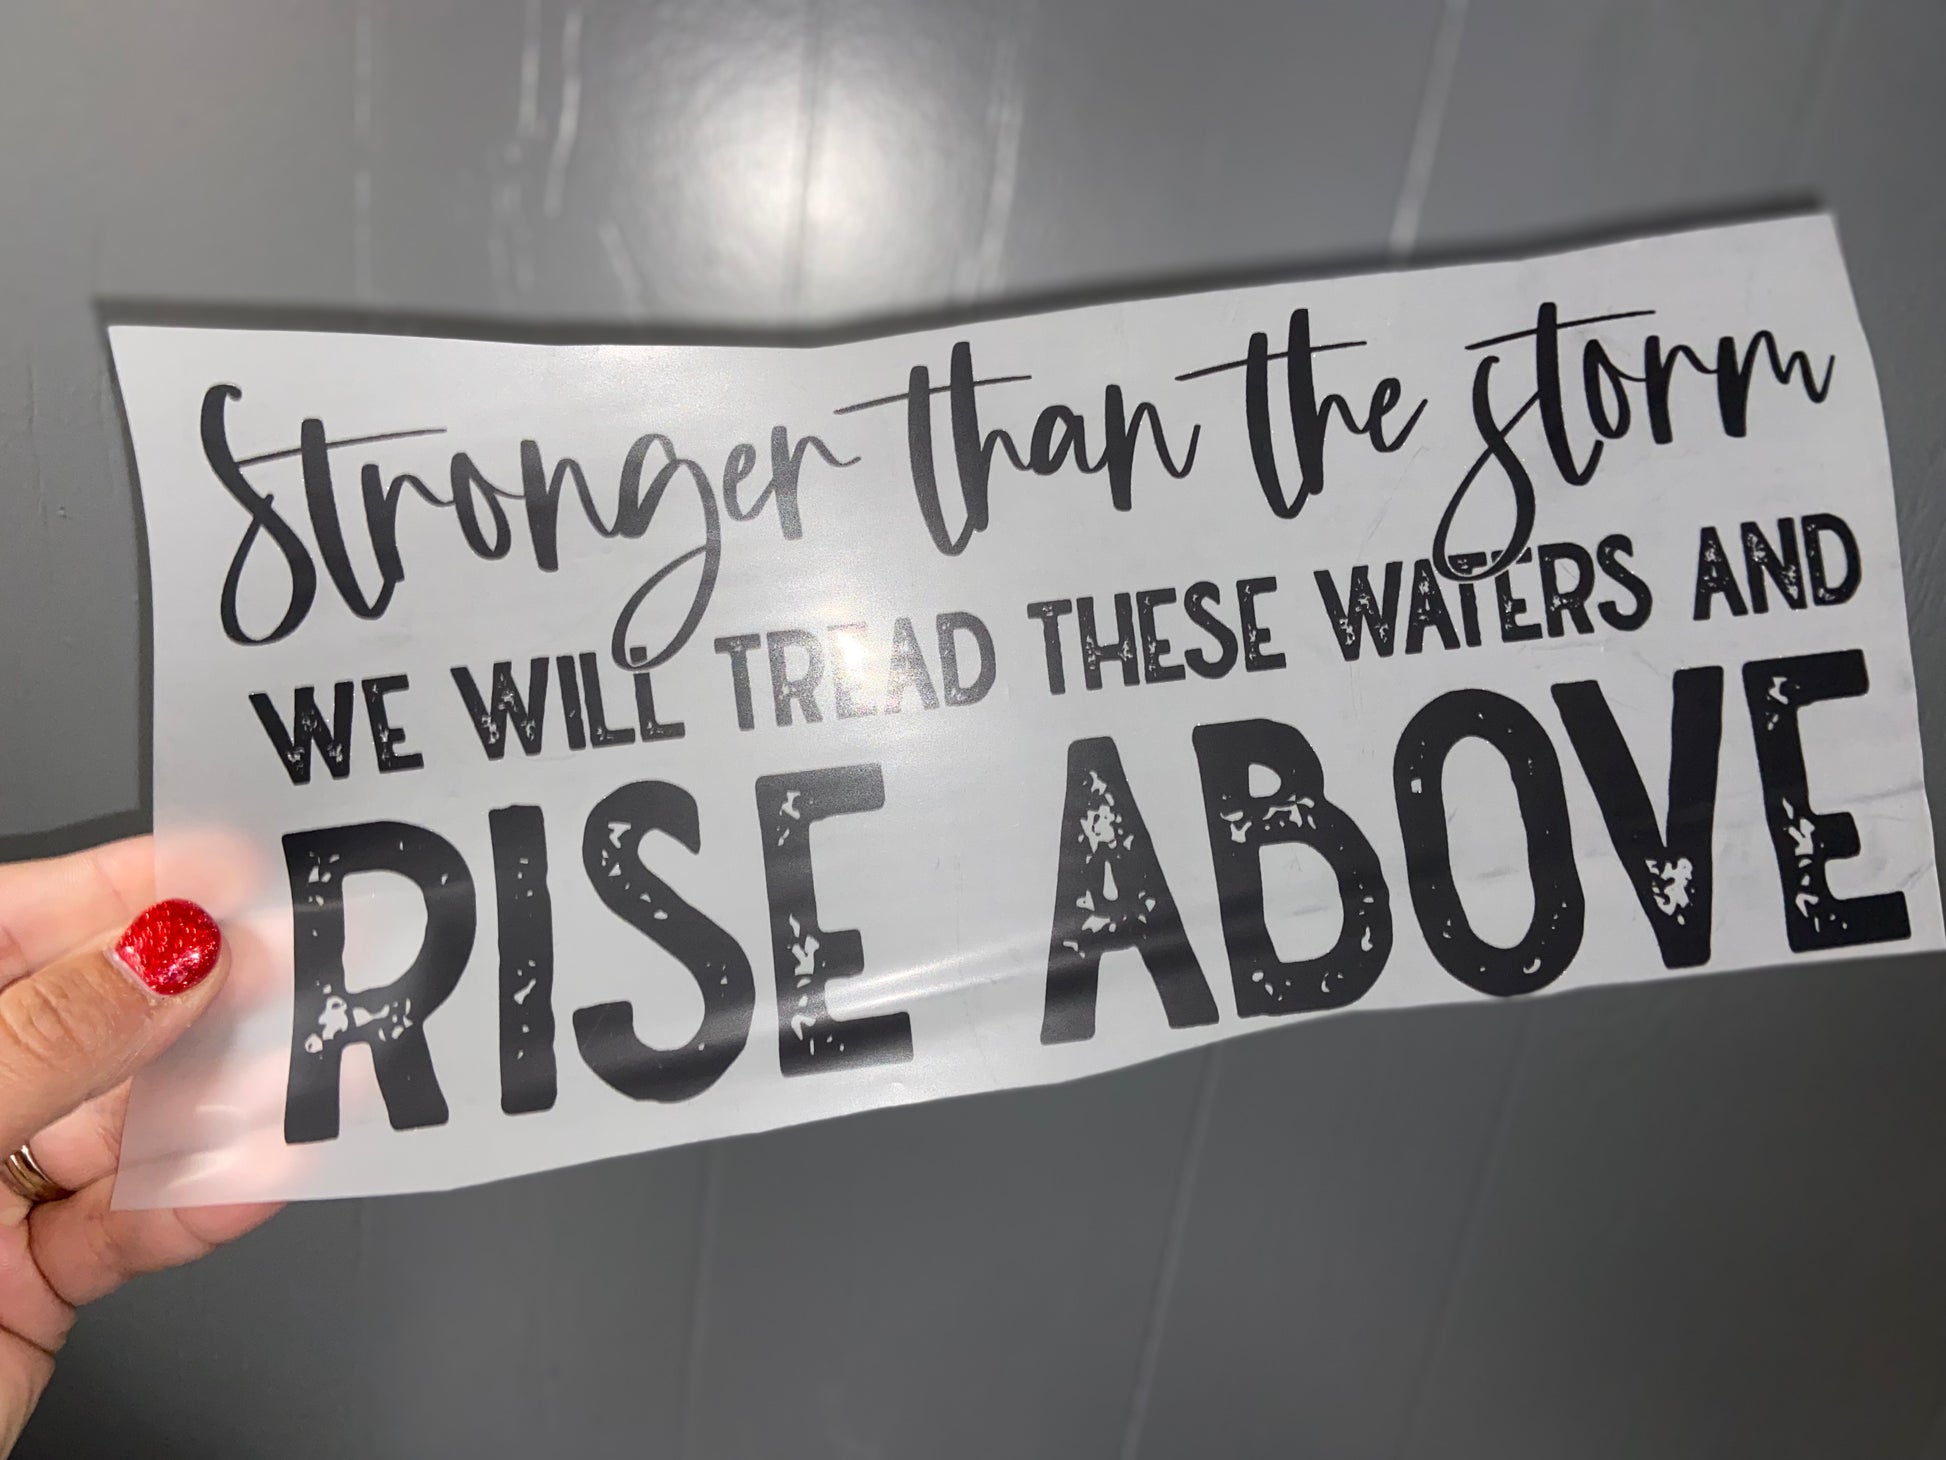 Stronger than the storm
WE WILL TREAD THESE WATERS AND
RISE ABOVE